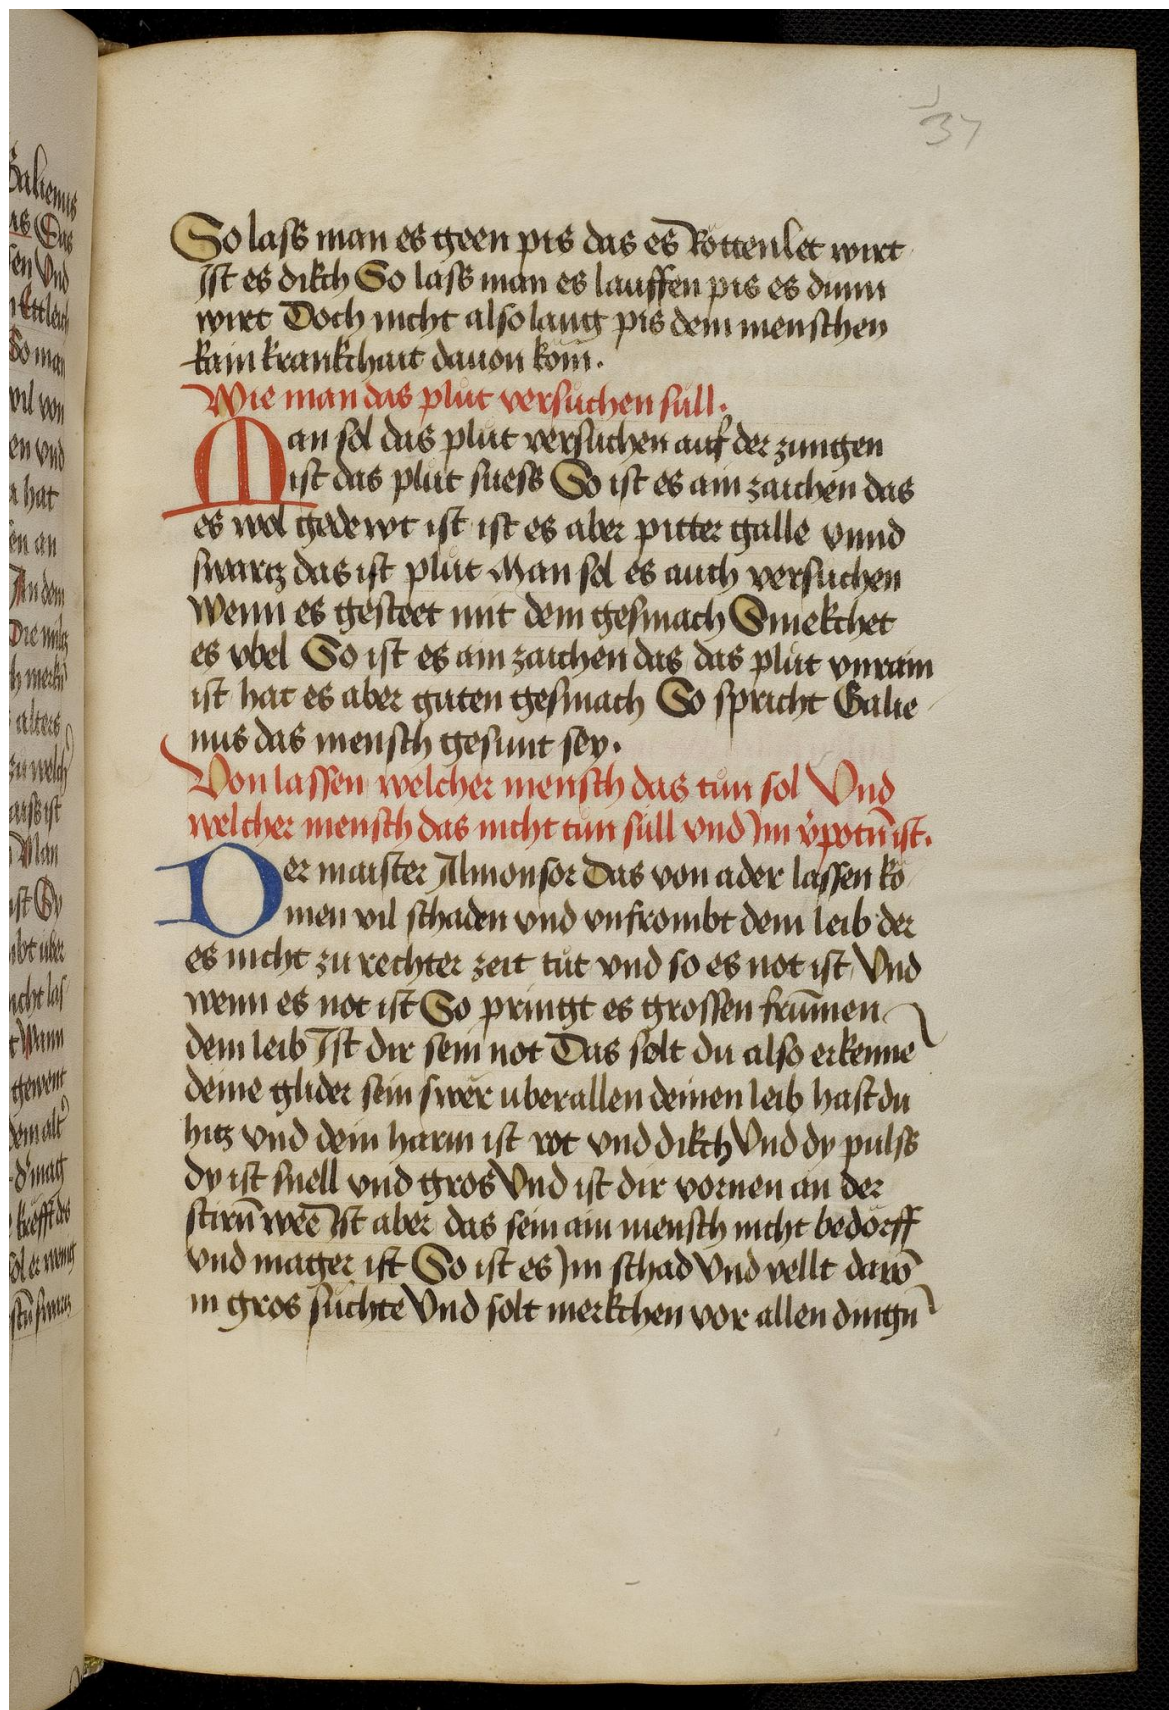 37
So lass man es geen pis das es Rottenlet wirt
Ist es dikch So lass man es lauffen pis es dunn
wirt Doch nicht also lang pis dem menschen
kain krankchait dauon kom.
Wie man das plůt versůchen sůll.
Man sol das plůt versuchen auf der zungen
ist das plůt suess So ist es ain zaichen das
es wol gedewt ist ist es aber pitter galle vnnd
swartz das ist plůt Man sol es auch versuchen
Wenn es gesteet mit dem gesmach Smekchet
es vbel So ist es ain zaichen das das plůt vnrain
ist hat es aber guten gesmach So spricht Galie
nus das mensch gesunt sey.
Von lassen welcher mensch das tůn sol Vnd
welcher mensch das nicht tůn sůll vnd Im v̈potn̄ ist.
Der maister Almonsor Das von ader lassen ko
men vil schaden vnd vnfrombt dem leib der
es nicht zu rechter zeit tůt vnd so es not ist Vnd
wenn es not ist So pringt es grossen frūmen
dem leib Ist dir sein not Das solt du also erkenne
deine glider sein swer uber allen deinen leib hast du
hitz vnd dein harm ist rot vnd dikch Vnd dy pulss
dy ist snell vnd gros Vnd ist dir vornen an der
stirn̄ wee Ist aber das sein ain mensch nicht bedorff
vnd mager ist So ist es Im schad Vnd vellt darō
in gros suchte Vnd solt merkchen vor allen dingn̄